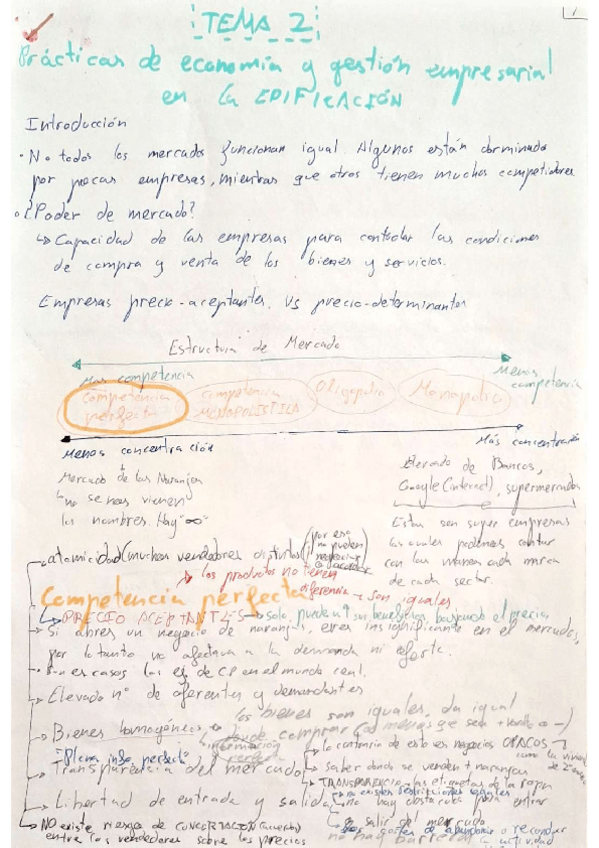 1
TEMA 2
Prácticas de economía y gestión empresarial
en la EDIFICACIÓN
Introducción
· No todos los mercados funcionan igual. Algunos están dominados
por pocas empresas, mientras que otros tienen muchos competidores
¿Poder de mercado?
↳ Capacidad de las empresas para controlar las condiciones
de compra y venta de los bienes y servicios.
Empresas precio-aceptantes vs precio-determinantes
Estructura de Mercado
Más competencia
Menos competencia
competencia perfecta
competencia MONOPOLÍSTICA
Oligopolio
Monopolio
Menos concentración
Más concentración
Mercado de las Naranjas
↳ no se
los nombres. Hay "∞"
Mercado de Bancos,
Google (internet), supermercados
Estas son super empresas
las cuales podemos contar
con las manos cada marca
de cada sector.
atomicidad (muchos vendedores distintos
(por eso no pueden
↳ los productos no tienen
diferencia → son iguales
Competencia perfecta
↳ PRECIO ACEPTANTES → Solo pueden ↑ sus beneficios, bajando el precio
Si abres un negocio de naranjas, eres insignificante en el mercado,
por lo tanto no afectará a la demanda ni oferta.
casos los ej. de CP en el mundo real.
Elevado nº de oferentes y demandantes
Bienes homogéneos → los bienes son iguales, da igual
donde comprar (a menos que sea
información perfecta
"Plena info perfecta"
Transparencia del mercado
↳ lo contrario de esto es negocios OPACOS
↳ saber donde se venden + naranjas
↳ TRANSPARENCIA → las etiquetas de la ropa
no existen restricciones legales
Libertad de entrada y salida
no hay obstáculos para entrar
o salir del mercado
no hay barreras
↳ NO existe riesgo de CONCERTACIÓN (acuerdos)
entre los vendedores sobre los precios